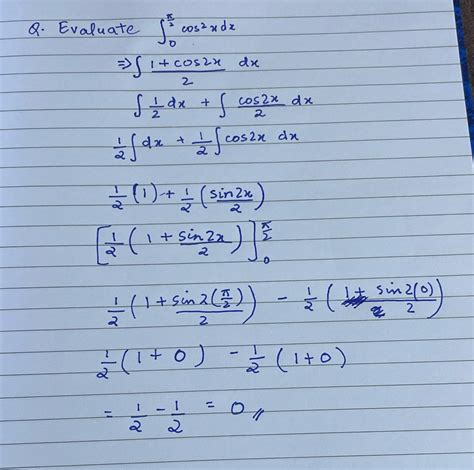 Q. Evaluate ∫₀^(π/2) cos²x dx
⇒ ∫ (1 + cos2x)/2 dx
∫ 1/2 dx + ∫ cos2x/2 dx
1/2 ∫ dx + 1/2 ∫ cos2x dx
1/2 (1) + 1/2 (sin2x/2)
[1/2 (1 + sin2x/2)]₀^(π/2)
1/2 (1 + sin2(π/2)/2) - 1/2 (1 + sin2(0)/2)
1/2 (1 + 0) - 1/2 (1+0)
= 1/2 - 1/2 = 0 //